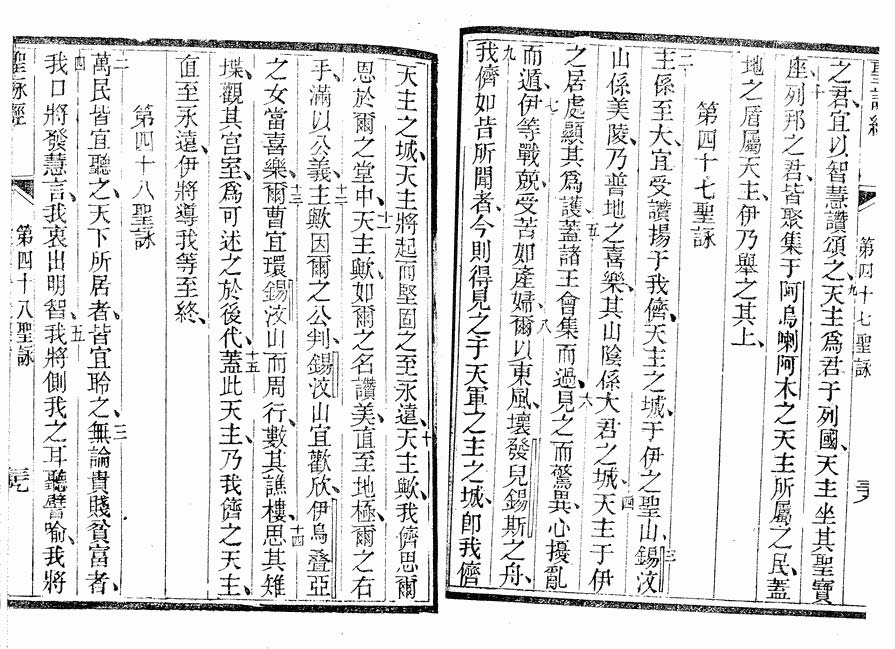 聖詠經
第四十七聖詠
三六
之君、宜以智慧讚頌之、九天主爲君于列國、天主坐其聖寶
座、十列邦之君、皆聚集于阿烏喇阿木之天主所屬之民、蓋
地之盾屬天主、伊乃舉之其上、
第四十七聖詠
二主係至大、宜受讚揚于我儕天主之城、于伊之聖山、三錫汶
山係美陵、乃普地之喜樂、其山陰係大君之城、四天主于伊
之居處顯其爲護蓋、五諸王會集而過、六見之而驚異、心擾亂
而遁、七伊等戰兢、受苦如產婦、八爾以東風、壞發兒錫斯之舟、
九我儕如昔所聞者、今則得見之于天軍之主之城、卽我儕
天主之城、天主將起而堅固之至永遠、十天主歟、我儕思爾
恩於爾之堂中、十一天主歟、如爾之名、讚美直至地極、爾之右
手、滿以公義、十二主歟、因爾之公判、錫汶山宜歡欣、伊烏叠亞
之女當喜樂、十三爾曹宜環錫汶山而周行、數其譙樓、十四思其雉
堞、觀其宮室、爲可述之於後代、十五蓋此天主、乃我儕之天主、
直至永遠、伊將導我等至終、
第四十八聖詠
二萬民皆宜聽之、天下所居者、皆宜聆之、三無論貴賤貧富者、
四我口將發慧言、我衷出明智、五我將側我之耳聽譬喻、我將
聖詠經
第四十八聖詠
三七